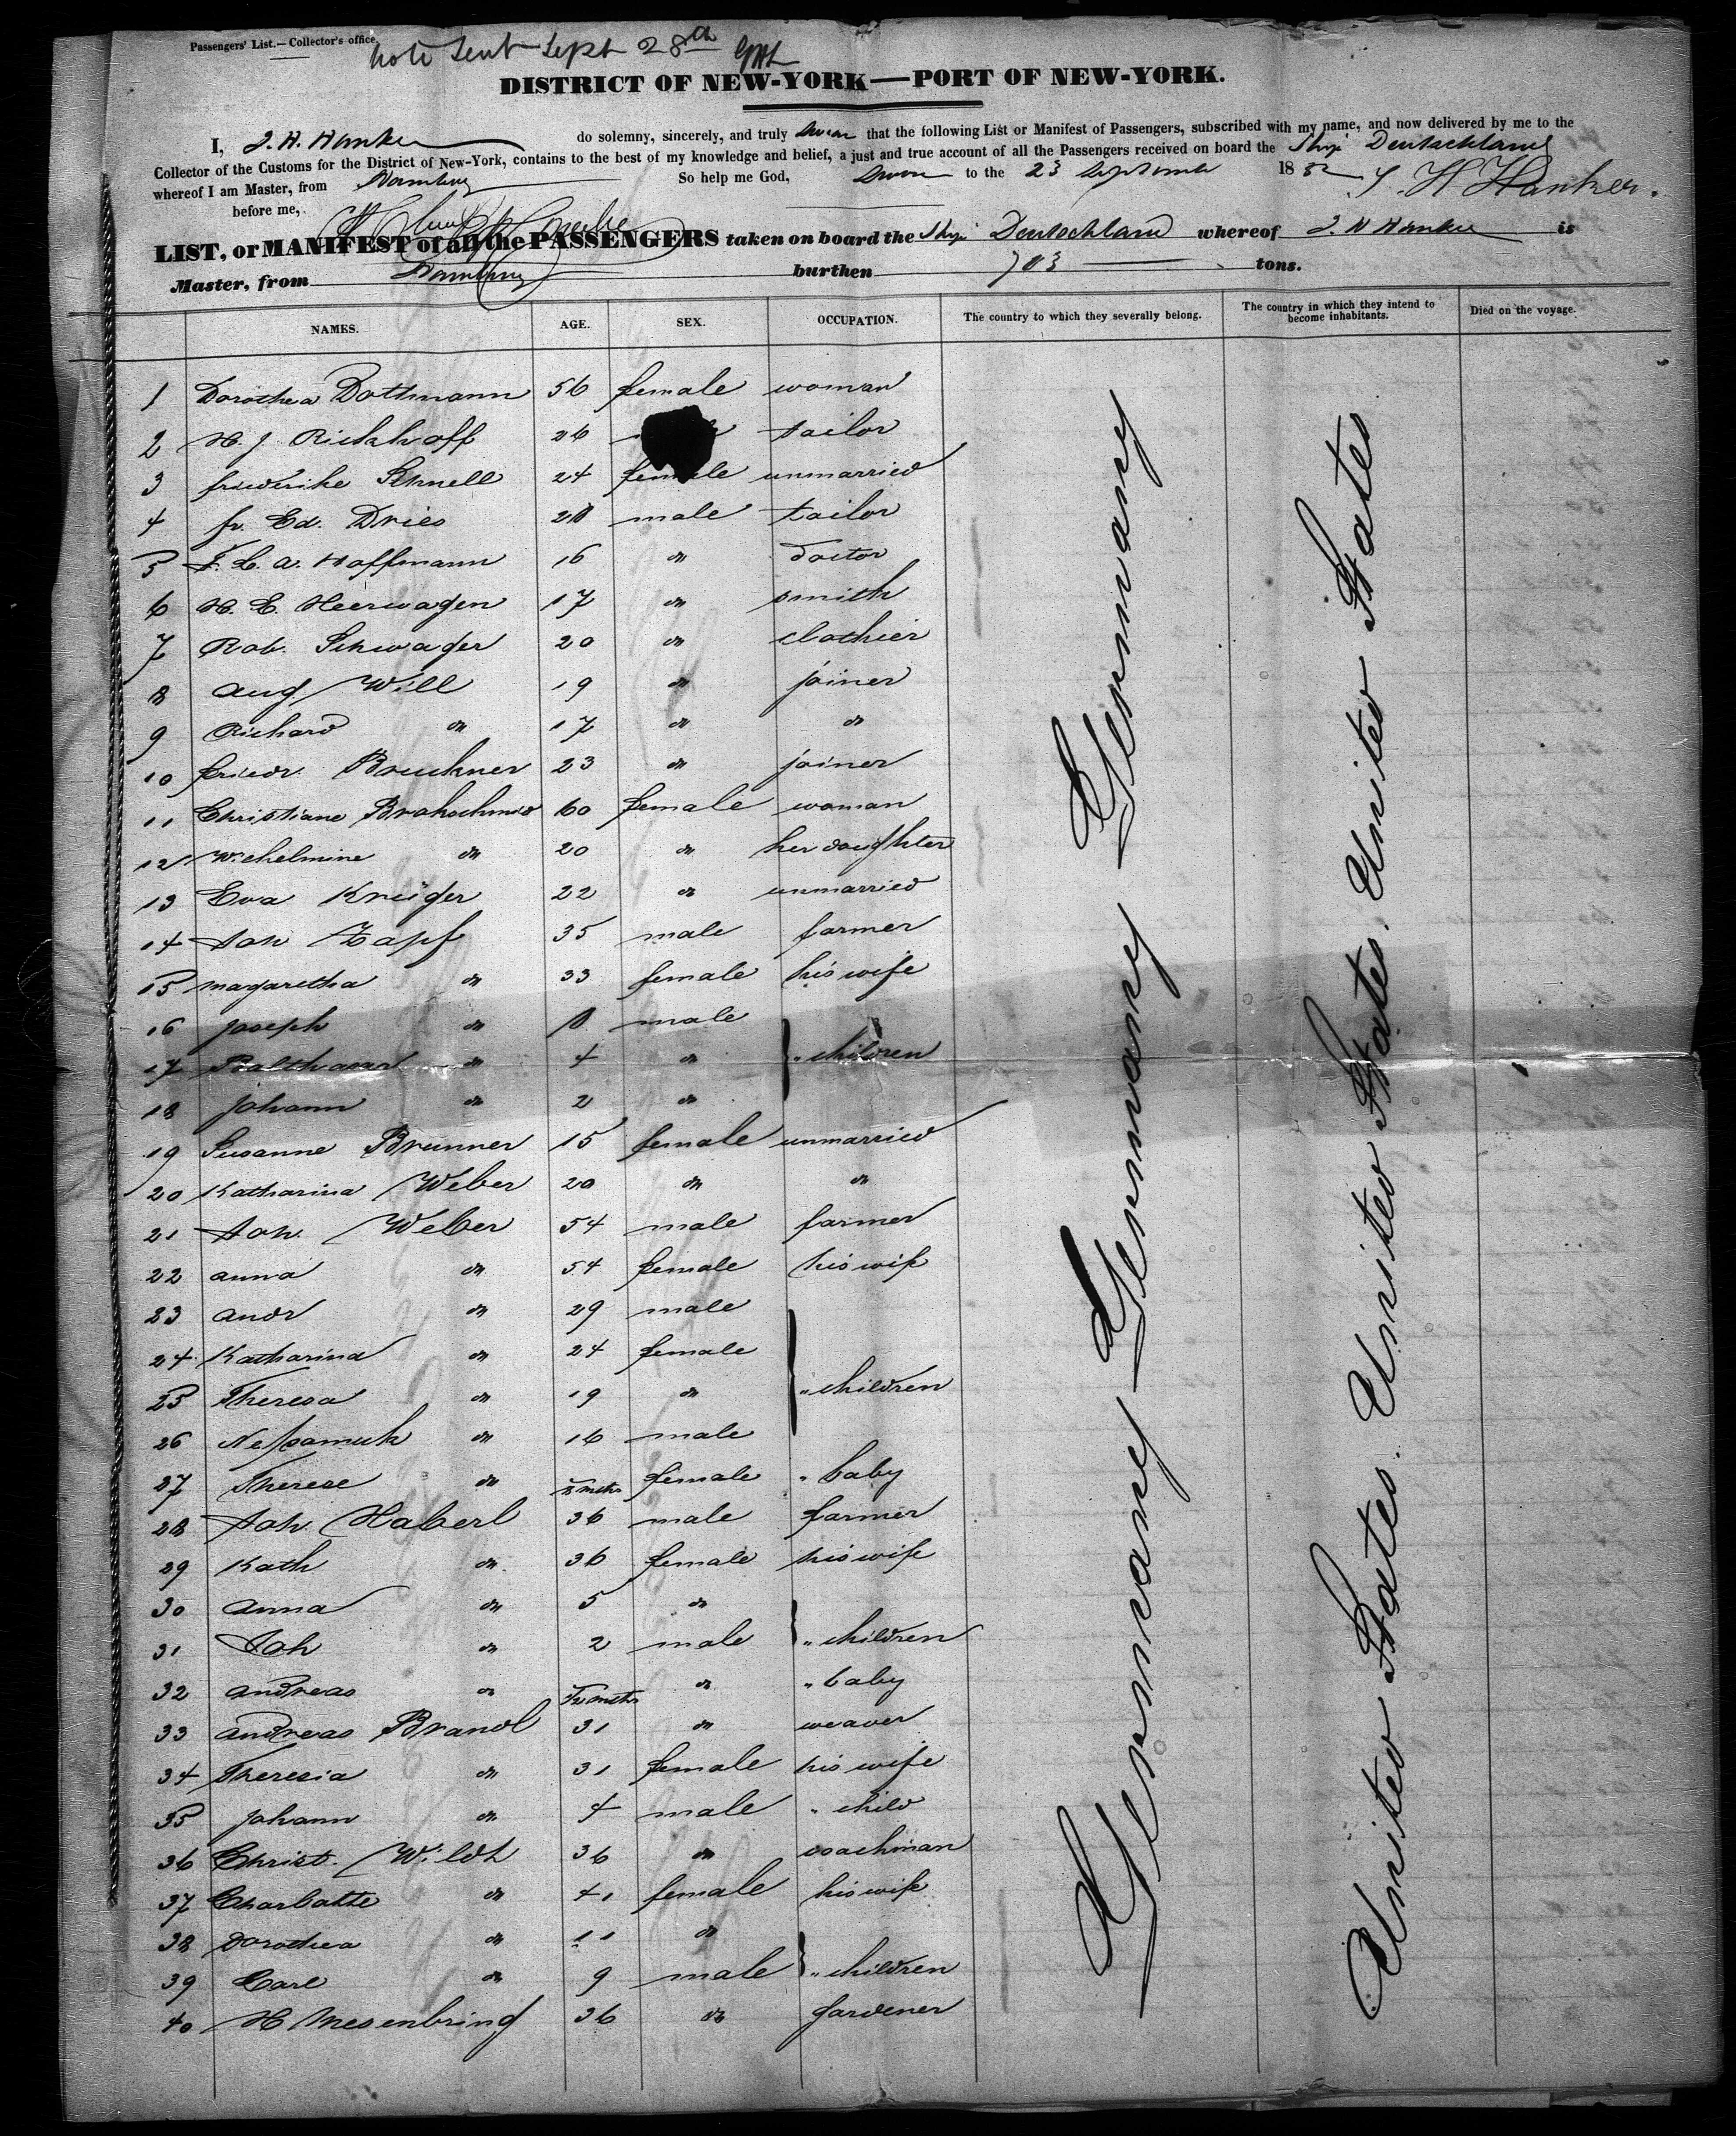 Passengers' List.—Collector's office.
Note sent Sept 28th
DISTRICT OF NEW-YORK—PORT OF NEW-YORK.
I, J. H. Hanker do solemny, sincerely, and truly swear that the following List or Manifest of Passengers, subscribed with my name, and now delivered by me to the
Collector of the Customs for the District of New-York, contains to the best of my knowledge and belief, a just and true account of all the Passengers received on board the Ship Deutschland
whereof I am Master, from Hamburg So help me God, Sworn to the 23 September 18 H Hanker.
before me,
LIST, or MANIFEST of all the PASSENGERS taken on board the Ship Deutschland whereof J. H Hanker is
Master, from Hamburg burthen 703 tons.
NAMES. AGE. SEX. OCCUPATION. The country to which they severally belong. The country in which they intend to become inhabitants. Died on the voyage.
1 Dorothea Dottmann 56 female woman
2 H. J. Rickhoff 26 tailor
3 friederike Schnell 24 female unmarried
4 fr. Ed. Dries 28 male tailor
5 F. C. A. Hoffmann 16 do doctor
6 H. E. Heerwagen 17 do smith
7 Rob. Schwager 20 do clothier
8 Aug Will 19 do joiner
9 Richard do 17 do do
10 friedr. Bruckner 23 do joiner
11 Christiane Brohschmid 60 female woman
12 Wilhelmine do 20 do her daughter
13 Eva Krüger 22 do unmarried
14 Joh Zapf 35 male farmer
15 Magaretha do 33 female his wife
16 Joseph do 8 male
17 Balthasar do 4 do " children
18 Johann do 2 do
19 Susanne Brunner 15 female unmarried
20 Katharina Weber 20 do do
21 Joh. Weber 54 male farmer
22 Anna do 54 female his wife
23 Andr do 29 male
24 Katharina do 24 female
25 Theresa do 19 do " children
26 Nepomuk do 16 male
27 Therese do female " baby
28 Joh Haberl 36 male farmer
29 Kath do 36 female his wife
30 Anna do 5 do
31 Joh do 2 male " children
32 Andreas do do " baby
33 Andreas Brandl 31 do weaver
34 Theresia do 31 female his wife
35 Johann do 4 male " child
36 Christ. Wildt 36 do coachman
37 Charlotte do 41 female his wife
38 Dorothea do 11 do
39 Carl do 9 male " children
40 H Mesenbring 36 do gardener
Germany Germany Germany Germany
United States. United States. United States